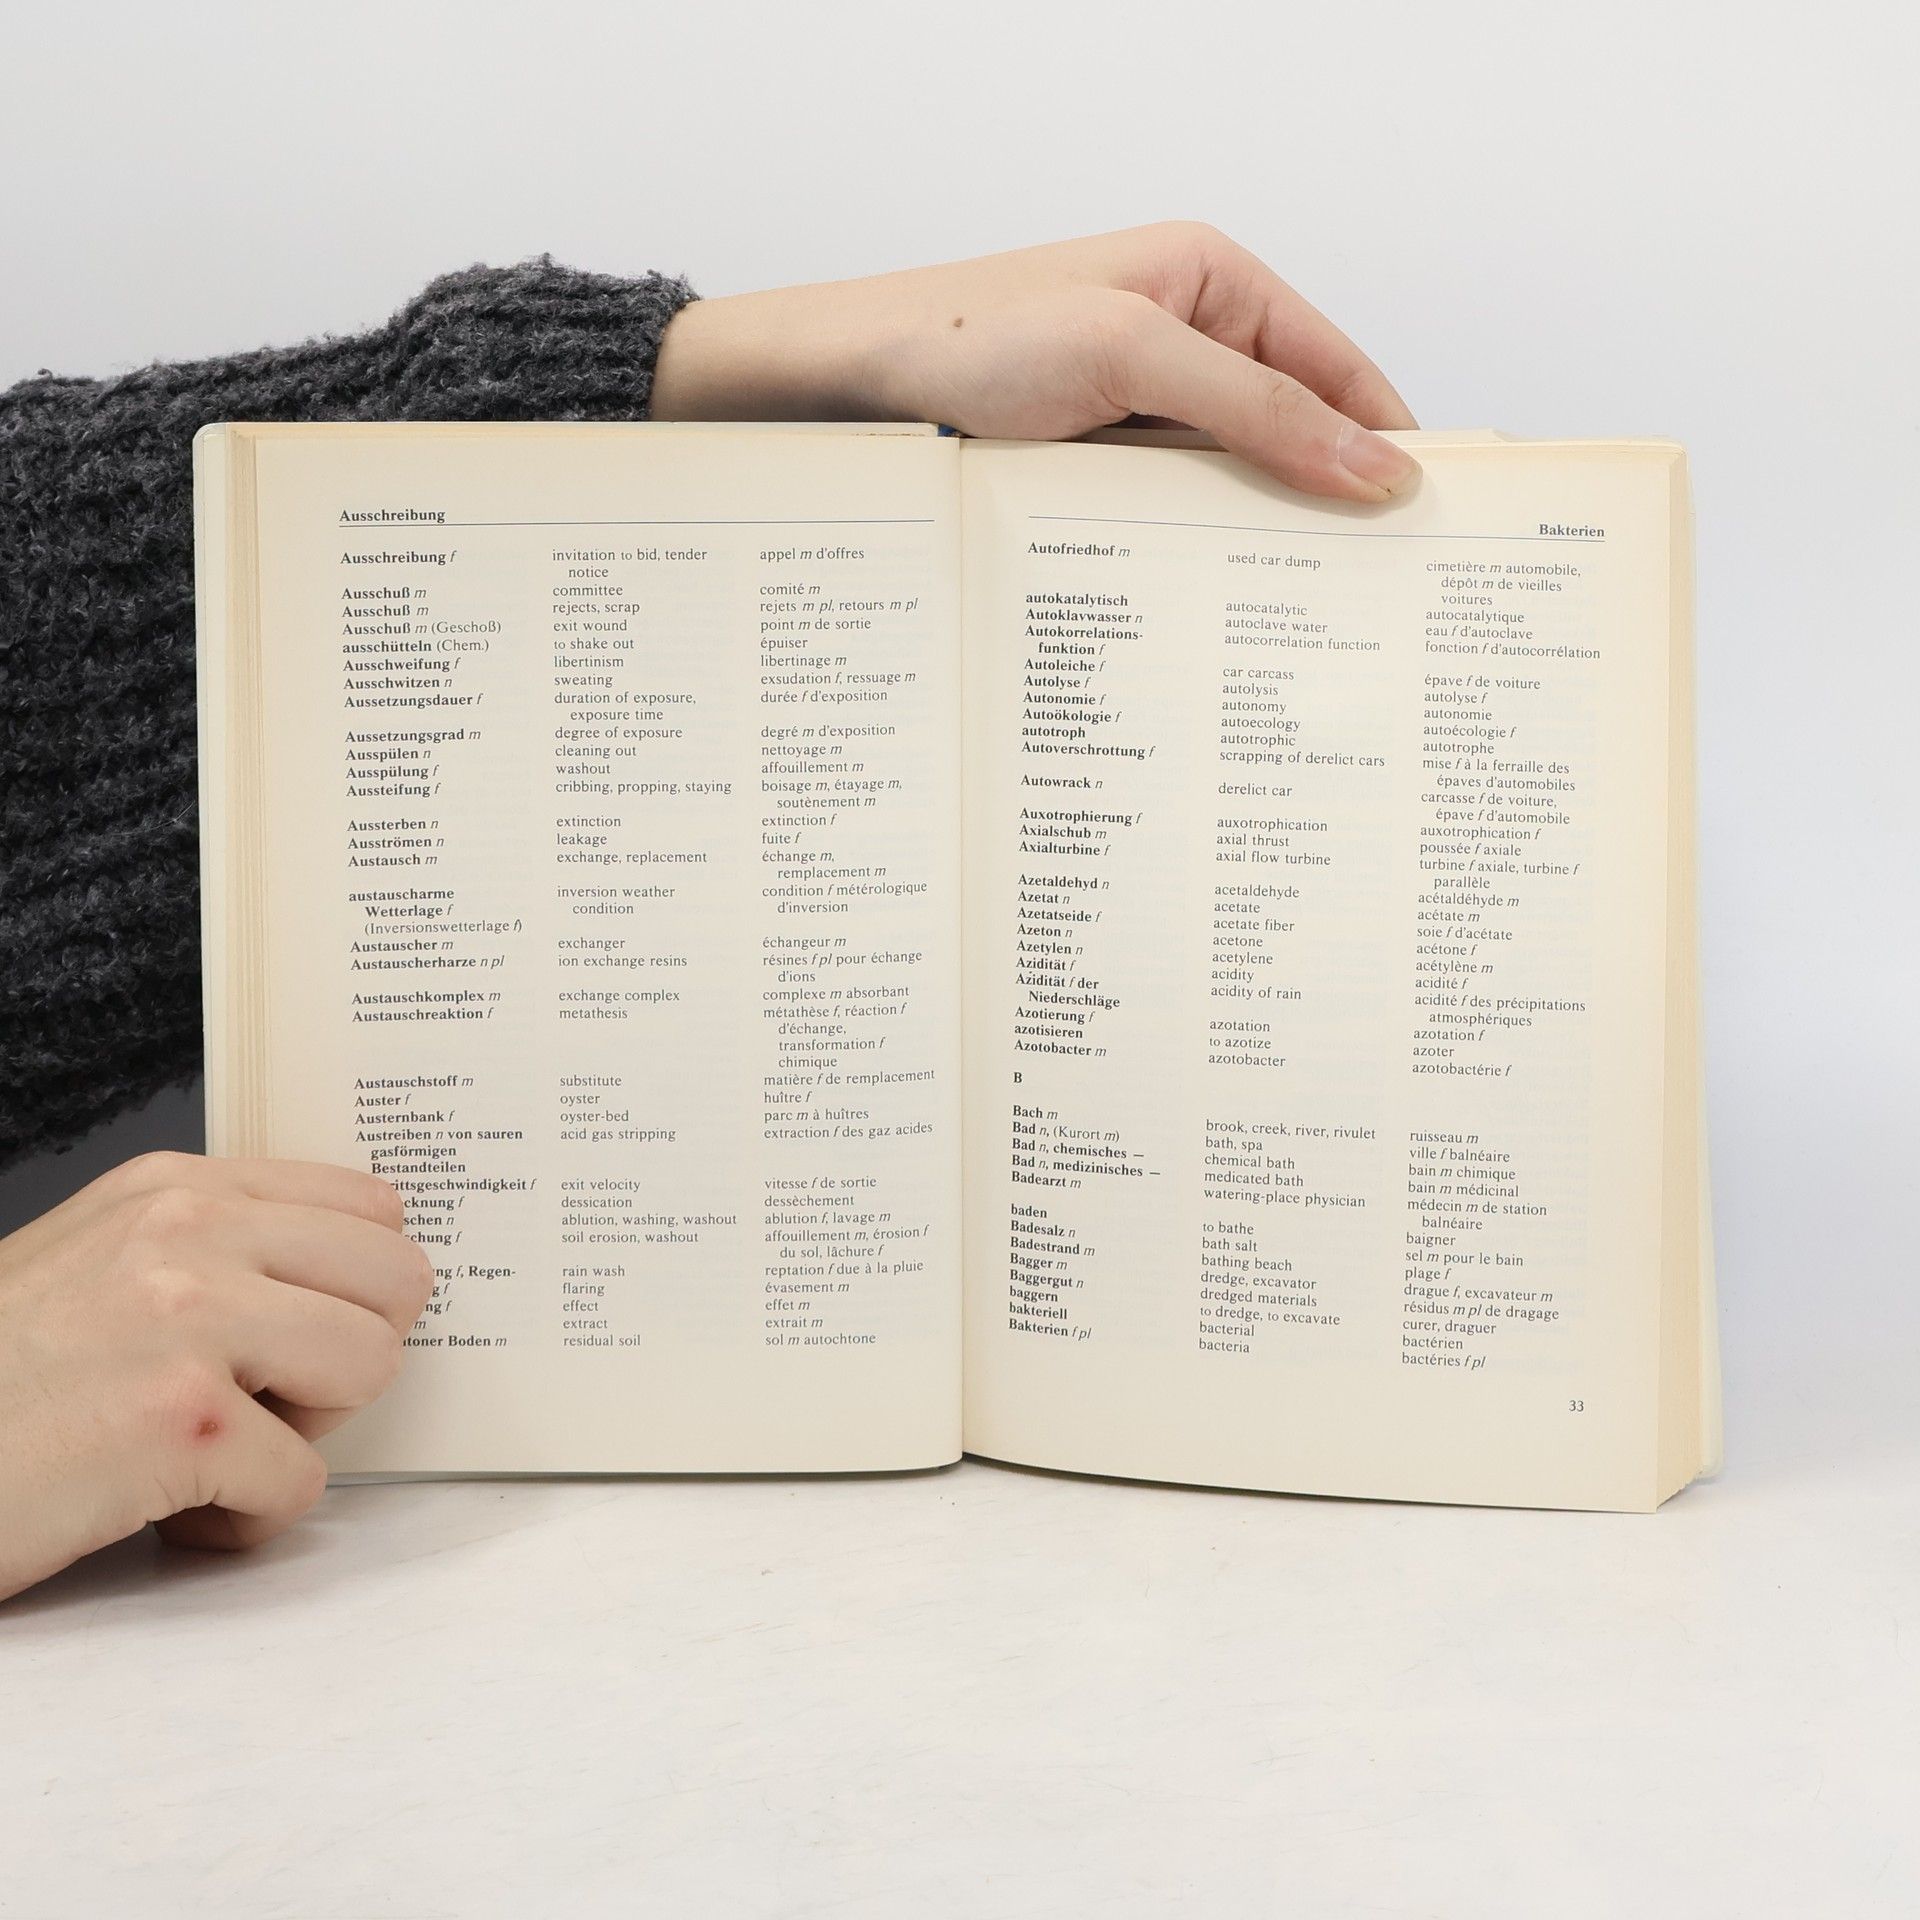 Ausschreibung
Ausschreibung f invitation to bid, tender appel m d'offres
notice
Ausschuß m committee comité m
Ausschuß m rejects, scrap rejets m pl, retours m pl
Ausschuß m (Geschoß) exit wound point m de sortie
ausschütteln (Chem.) to shake out épuiser
Ausschweifung f libertinism libertinage m
Ausschwitzen n sweating exsudation f, ressuage m
Aussetzungsdauer f duration of exposure, durée f d'exposition
exposure time
Aussetzungsgrad m degree of exposure degré m d'exposition
Ausspülen n cleaning out nettoyage m
Ausspülung f washout affouillement m
Aussteifung f cribbing, propping, staying boisage m, étayage m,
soutènement m
Aussterben n extinction extinction f
Ausströmen n leakage fuite f
Austausch m exchange, replacement échange m,
remplacement m
austauscharme inversion weather condition f météorologique
Wetterlage f condition d'inversion
(Inversionswetterlage f)
Austauscher m exchanger échangeur m
Austauscherharze n pl ion exchange resins résines f pl pour échange
d'ions
Austauschkomplex m exchange complex complexe m absorbant
Austauschreaktion f metathesis métathèse f, réaction f
d'échange,
transformation f
chimique
Austauschstoff m substitute matière f de remplacement
Auster f oyster huître f
Austernbank f oyster-bed parc m à huîtres
Austreiben n von sauren acid gas stripping extraction f des gaz acides
gasförmigen
Bestandteilen
ittsgeschwindigkeit f exit velocity vitesse f de sortie
cknung f dessication dessèchement
schen n ablution, washing, washout ablution f, lavage m
chung f soil erosion, washout affouillement m, érosion f
du sol, lâchure f
ng f, Regen- rain wash reptation f due à la pluie
g f flaring évasement m
ng f effect effet m
m extract extrait m
toner Boden m residual soil sol m autochtone
Bakterien
Autofriedhof m used car dump cimetière m automobile,
dépôt m de vieilles
voitures
autokatalytisch autocatalytic autocatalytique
Autoklavwasser n autoclave water eau f d'autoclave
Autokorrelations- autocorrelation function fonction f d'autocorrélation
funktion f
Autoleiche f car carcass épave f de voiture
Autolyse f autolysis autolyse f
Autonomie f autonomy autonomie
Autoökologie f autoecology autoécologie f
autotroph autotrophic autotrophe
Autoverschrottung f scrapping of derelict cars mise f à la ferraille des
épaves d'automobiles
Autowrack n derelict car carcasse f de voiture,
épave f d'automobile
Auxotrophierung f auxotrophication auxotrophication f
Axialschub m axial thrust poussée f axiale
Axialturbine f axial flow turbine turbine f axiale, turbine f
parallèle
Azetaldehyd n acetaldehyde acétaldéhyde m
Azetat n acetate acétate m
Azetatseide f acetate fiber soie f d'acétate
Azeton n acetone acétone f
Azetylen n acetylene acétylène m
Azidität f acidity acidité f
Azidität f der acidity of rain acidité f des précipitations
Niederschläge atmosphériques
Azotierung f azotation azotation f
azotisieren to azotize azoter
Azotobacter m azotobacter azotobactérie f
B
Bach m brook, creek, river, rivulet ruisseau m
Bad n, (Kurort m) bath, spa ville f balnéaire
Bad n, chemisches — chemical bath bain m chimique
Bad n, medizinisches — medicated bath bain m médicinal
Badearzt m watering-place physician médecin m de station
balnéaire
baden to bathe baigner
Badesalz n bath salt sel m pour le bain
Badestrand m bathing beach plage f
Bagger m dredge, excavator drague f, excavateur m
Baggergut n dredged materials résidus m pl de dragage
baggern to dredge, to excavate curer, draguer
bakteriell bacterial bactérien
Bakterien f pl bacteria bactéries f pl
33